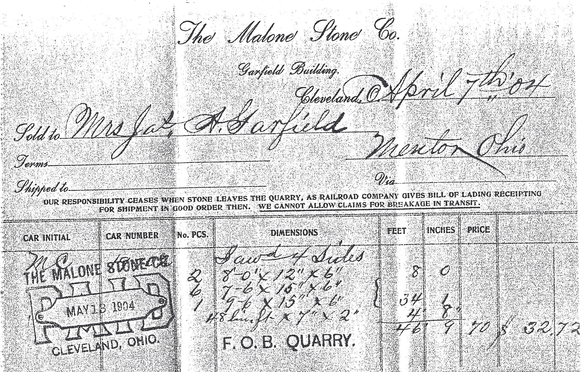 The Malone Stone Co.
Garfield Building.
Cleveland, O. April 7th '04
Sold to Mrs Jas. A. Garfield
Terms Mentor Ohio
Shipped to Via
OUR RESPONSIBILITY CEASES WHEN STONE LEAVES THE QUARRY, AS RAILROAD COMPANY GIVES BILL OF LADING RECEIPTING
FOR SHIPMENT IN GOOD ORDER THEN. WE CANNOT ALLOW CLAIMS FOR BREAKAGE IN TRANSIT.
CAR INITIAL CAR NUMBER No. PCS. DIMENSIONS FEET INCHES PRICE
M.C. Sawd 4 Sides
THE MALONE STONE CO.
2 8'-0" x 12" x 6" 8 0
6 7-6 x 15" x 6"
MAY 13 1904
1 9-6 x 15" x 6" 34 1
48 lin. ft x 7" x 2" 4' 8"
46 9 70 $ 32,72
CLEVELAND, OHIO.
F. O. B. QUARRY.